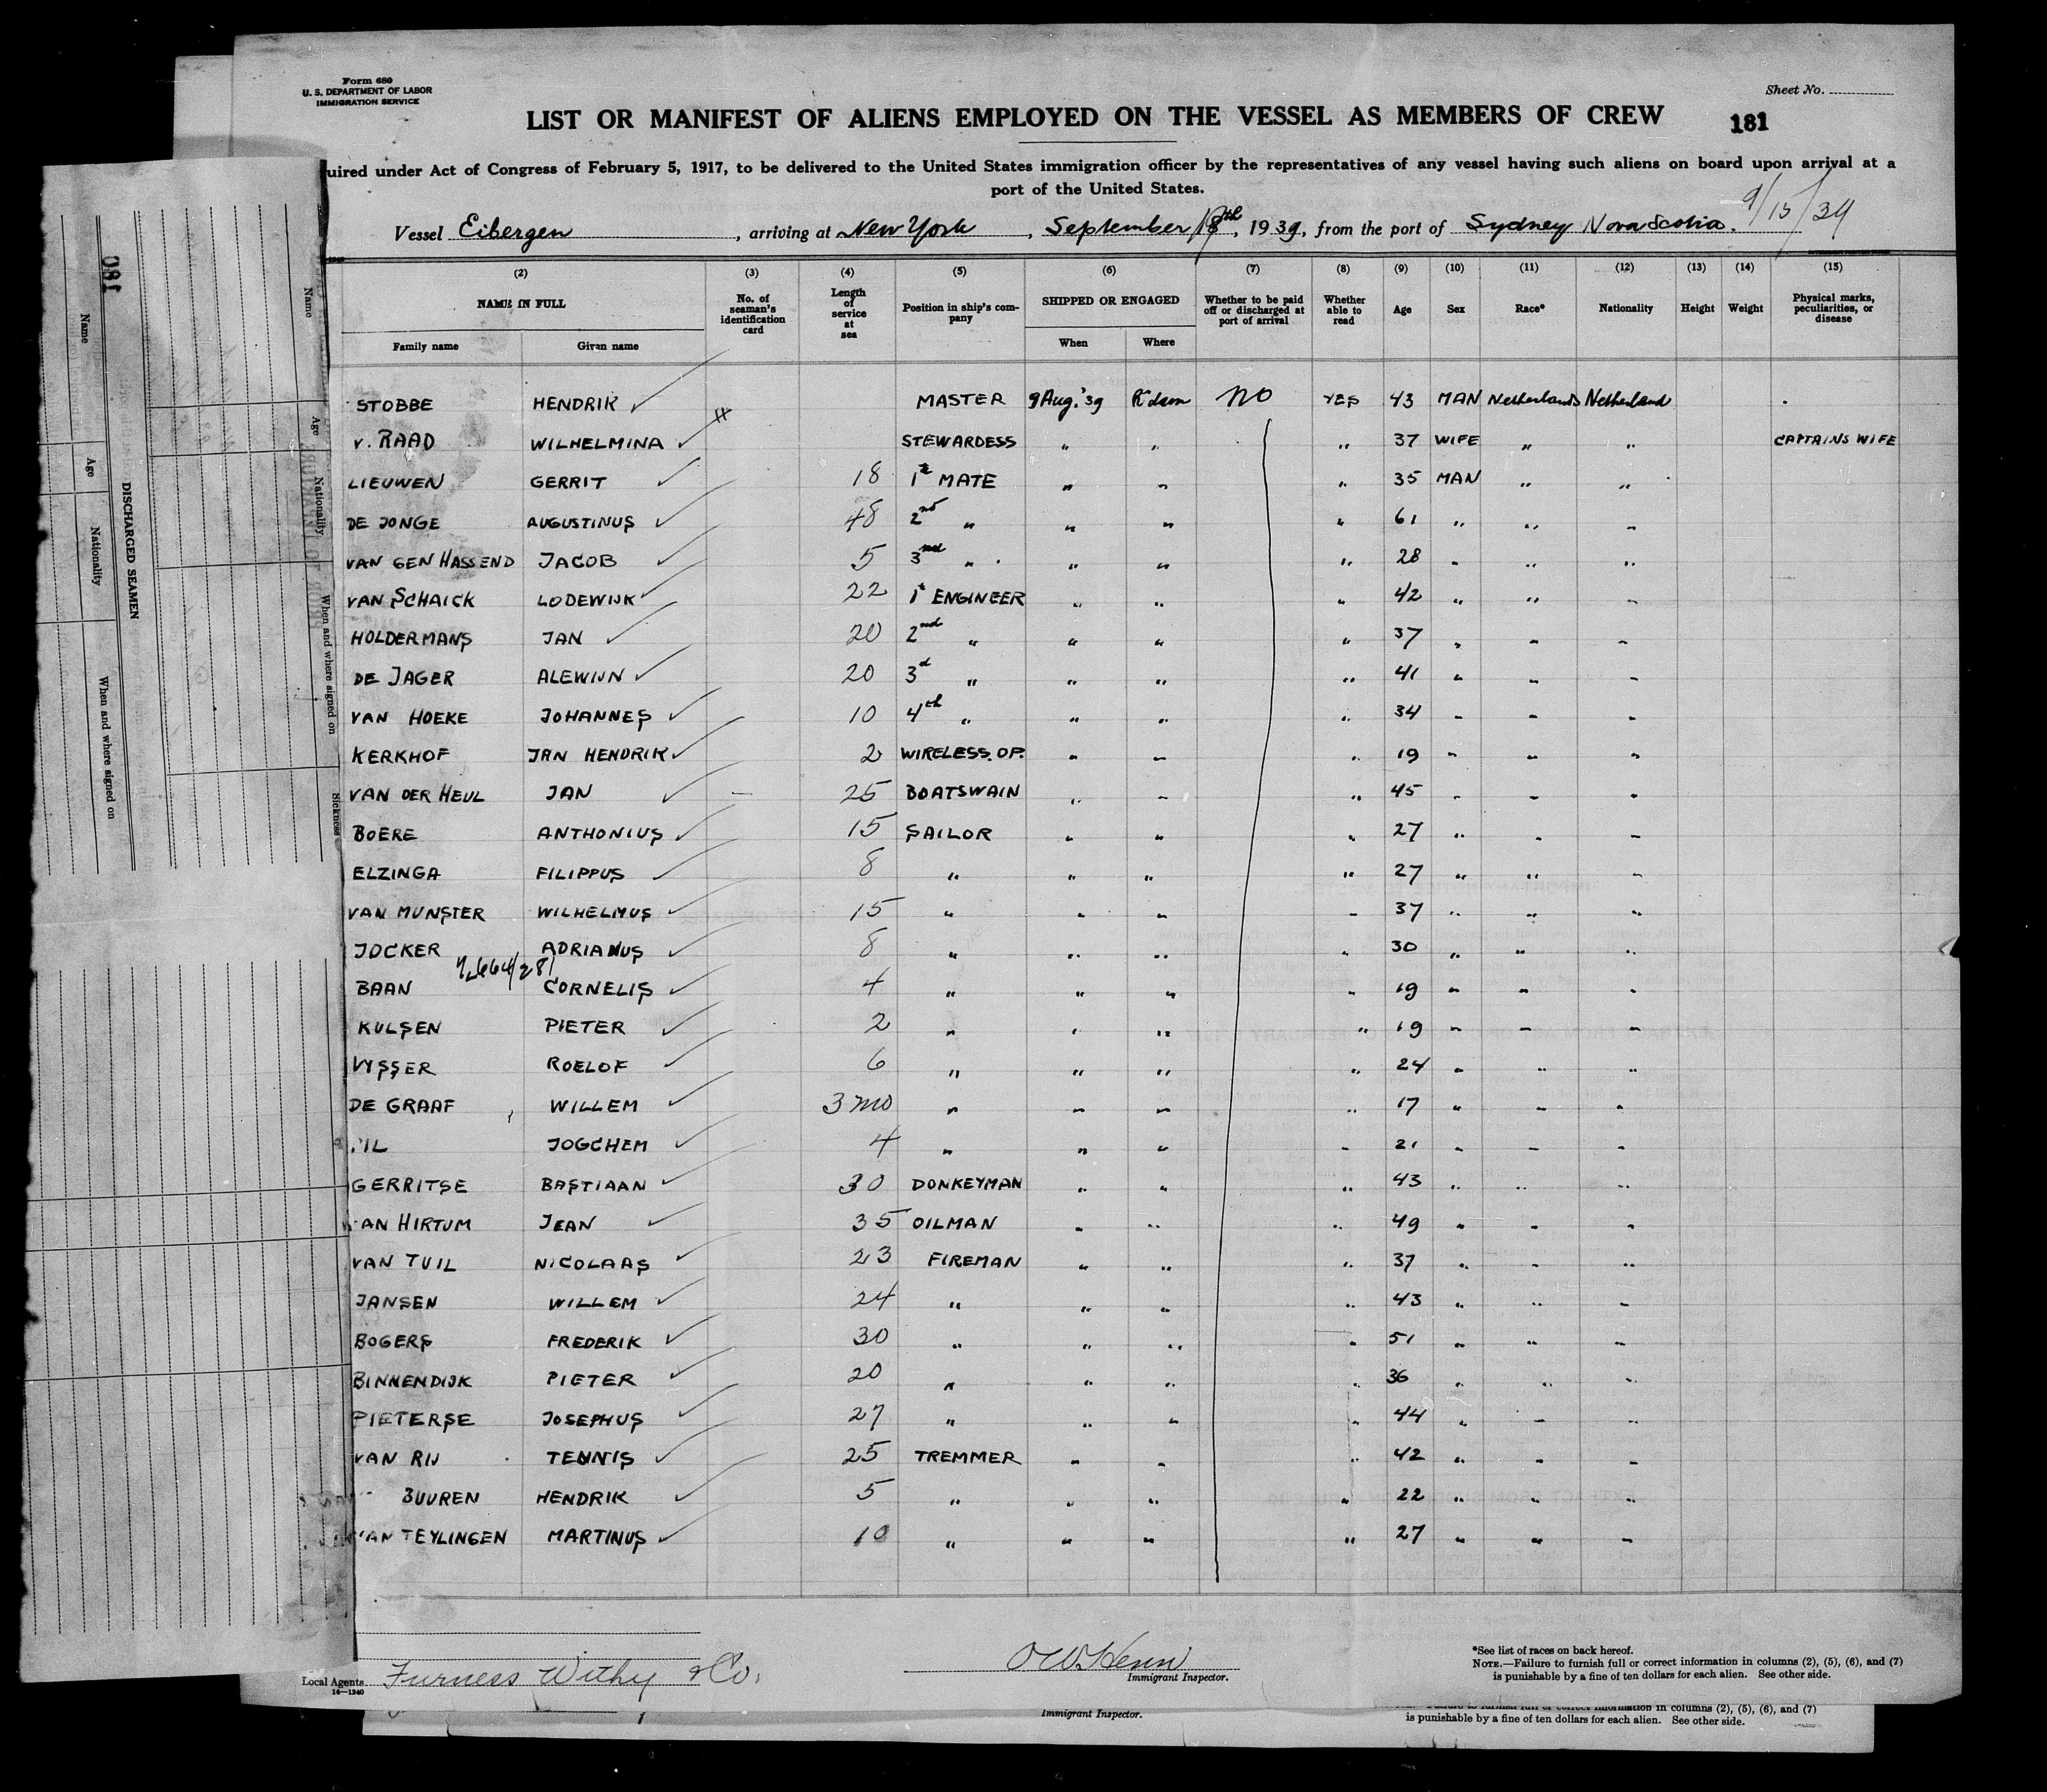 Form 680
U. S. DEPARTMENT OF LABOR
IMMIGRATION SERVICE
Sheet No.
LIST OR MANIFEST OF ALIENS EMPLOYED ON THE VESSEL AS MEMBERS OF CREW
181
uired under Act of Congress of February 5, 1917, to be delivered to the United States immigration officer by the representatives of any vessel having such aliens on board upon arrival at a
port of the United States.
Vessel Eibergen, arriving at New York, September 18th, 1939, from the port of Sydney Nova Scotia.
(2) (3) (4) (5) (6) (7) (8) (9) (10) (11) (12) (13) (14) (15)
NAME IN FULL No. of seaman's identification card Length of service at sea Position in ship's company SHIPPED OR ENGAGED Whether to be paid off or discharged at port of arrival Whether able to read Age Sex Race* Nationality Height Weight Physical marks, peculiarities, or disease
Family name Given name When Where
STOBBE HENDRIK MASTER 9 Aug.'39 R'dam no YES 43 MAN Netherlands Netherland
v. RAAD WILHELMINA STEWARDESS " " " 37 WIFE " " CAPTAINS WIFE
LIEUWEN GERRIT 18 1st MATE " " " 35 MAN " "
DE JONGE AUGUSTINUS 48 2nd " " " " 61 " " "
VAN GEN HASSEND JACOB 5 3nd " " " " 28 " " "
VAN SCHAICK LODEWIJK 22 1st ENGINEER " " " 42 " " "
HOLDERMANS JAN 20 2nd " " " " 37 " " "
DE JAGER ALEWIJN 20 3d " " " " 41 " " "
VAN HOEKE JOHANNES 10 4th " " " " 34 " " "
KERKHOF JAN HENDRIK 2 WIRELESS. OP. " " " 19 " " "
VAN DER HEUL JAN 25 BOATSWAIN " " " 45 " " "
BOERE ANTHONIUS 15 SAILOR " " " 27 " " "
ELZINGA FILIPPUS 8 " " " " 27 " " "
VAN MUNSTER WILHELMUS 15 " " " " 37 " " "
JOCKER ADRIANUS 8 " " " " 30 " " "
BAAN CORNELIS 4 " " " " 19 " " "
KULSEN PIETER 2 " " " " 19 " " "
VYSSER ROELOF 6 " " " " 24 " " "
DE GRAAF WILLEM 3 mo " " " " 17 " " "
IL JOGCHEM 4 " " " " 21 " " "
GERRITSE BASTIAAN 30 DONKEYMAN " " " 43 " " "
VAN HIRTUM JEAN 35 OILMAN " " " 49 " " "
VAN TUIL NICOLAAS 23 FIREMAN " " " 37 " " "
JANSEN WILLEM 24 " " " " 43 " " "
BOGERS FREDERIK 30 " " " " 51 " " "
BINNENDIJK PIETER 20 " " " " 36 " " "
PIETERSE JOSEPHUS 27 " " " " 44 " " "
VAN RIJ TEUNIS 25 TREMMER " " " 42 " " "
BUUREN HENDRIK 5 " " " " 22 " " "
VAN TEYLINGEN MARTINUS 10 " " " " 27 " " "
Local Agents Furness Withy & Co.
14—1240
Immigrant Inspector.
*See list of races on back hereof.
NOTE.—Failure to furnish full or correct information in columns (2), (5), (6), and (7)
is punishable by a fine of ten dollars for each alien. See other side.
Immigrant Inspector.
information in columns (2), (5), (6), and (7)
is punishable by a fine of ten dollars for each alien. See other side.
180
DISCHARGED SEAMEN
Name
Age
Nationality
When and where signed on
Name
Age
Nationality
When and where signed on
Sickness